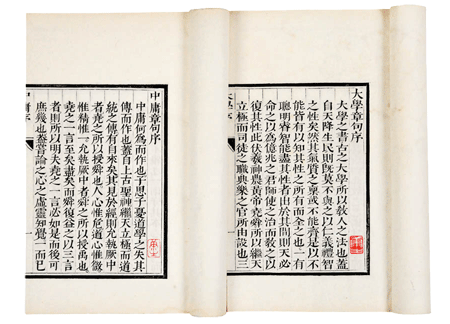 大學章句序
大學之書古之大學所以教人之法也蓋
自天降生民則既莫不與之以仁義禮智
之性矣然其氣質之稟或不能齊是以不
能皆有以知其性之所有而全之也一有
聰明睿智能盡其性者出於其間則天必
命之以爲億兆之君師使之治而教之以
復其性此伏羲神農黃帝堯舜所以繼天
立極而司徒之職典樂之官所由設也三
中庸章句序
中庸何爲而作也子思子憂道學之失其
傳而作也蓋自上古聖神繼天立極而道
統之傳有自來矣其見於經則允執厥中
者堯之所以授舜也人心惟危道心惟微
惟精惟一允執厥中者舜之所以授禹也
堯之一言至矣盡矣而舜復益之以三言
者則所以明夫堯之一言必如是而後可
庶幾也蓋嘗論之心之虛靈知覺一而已